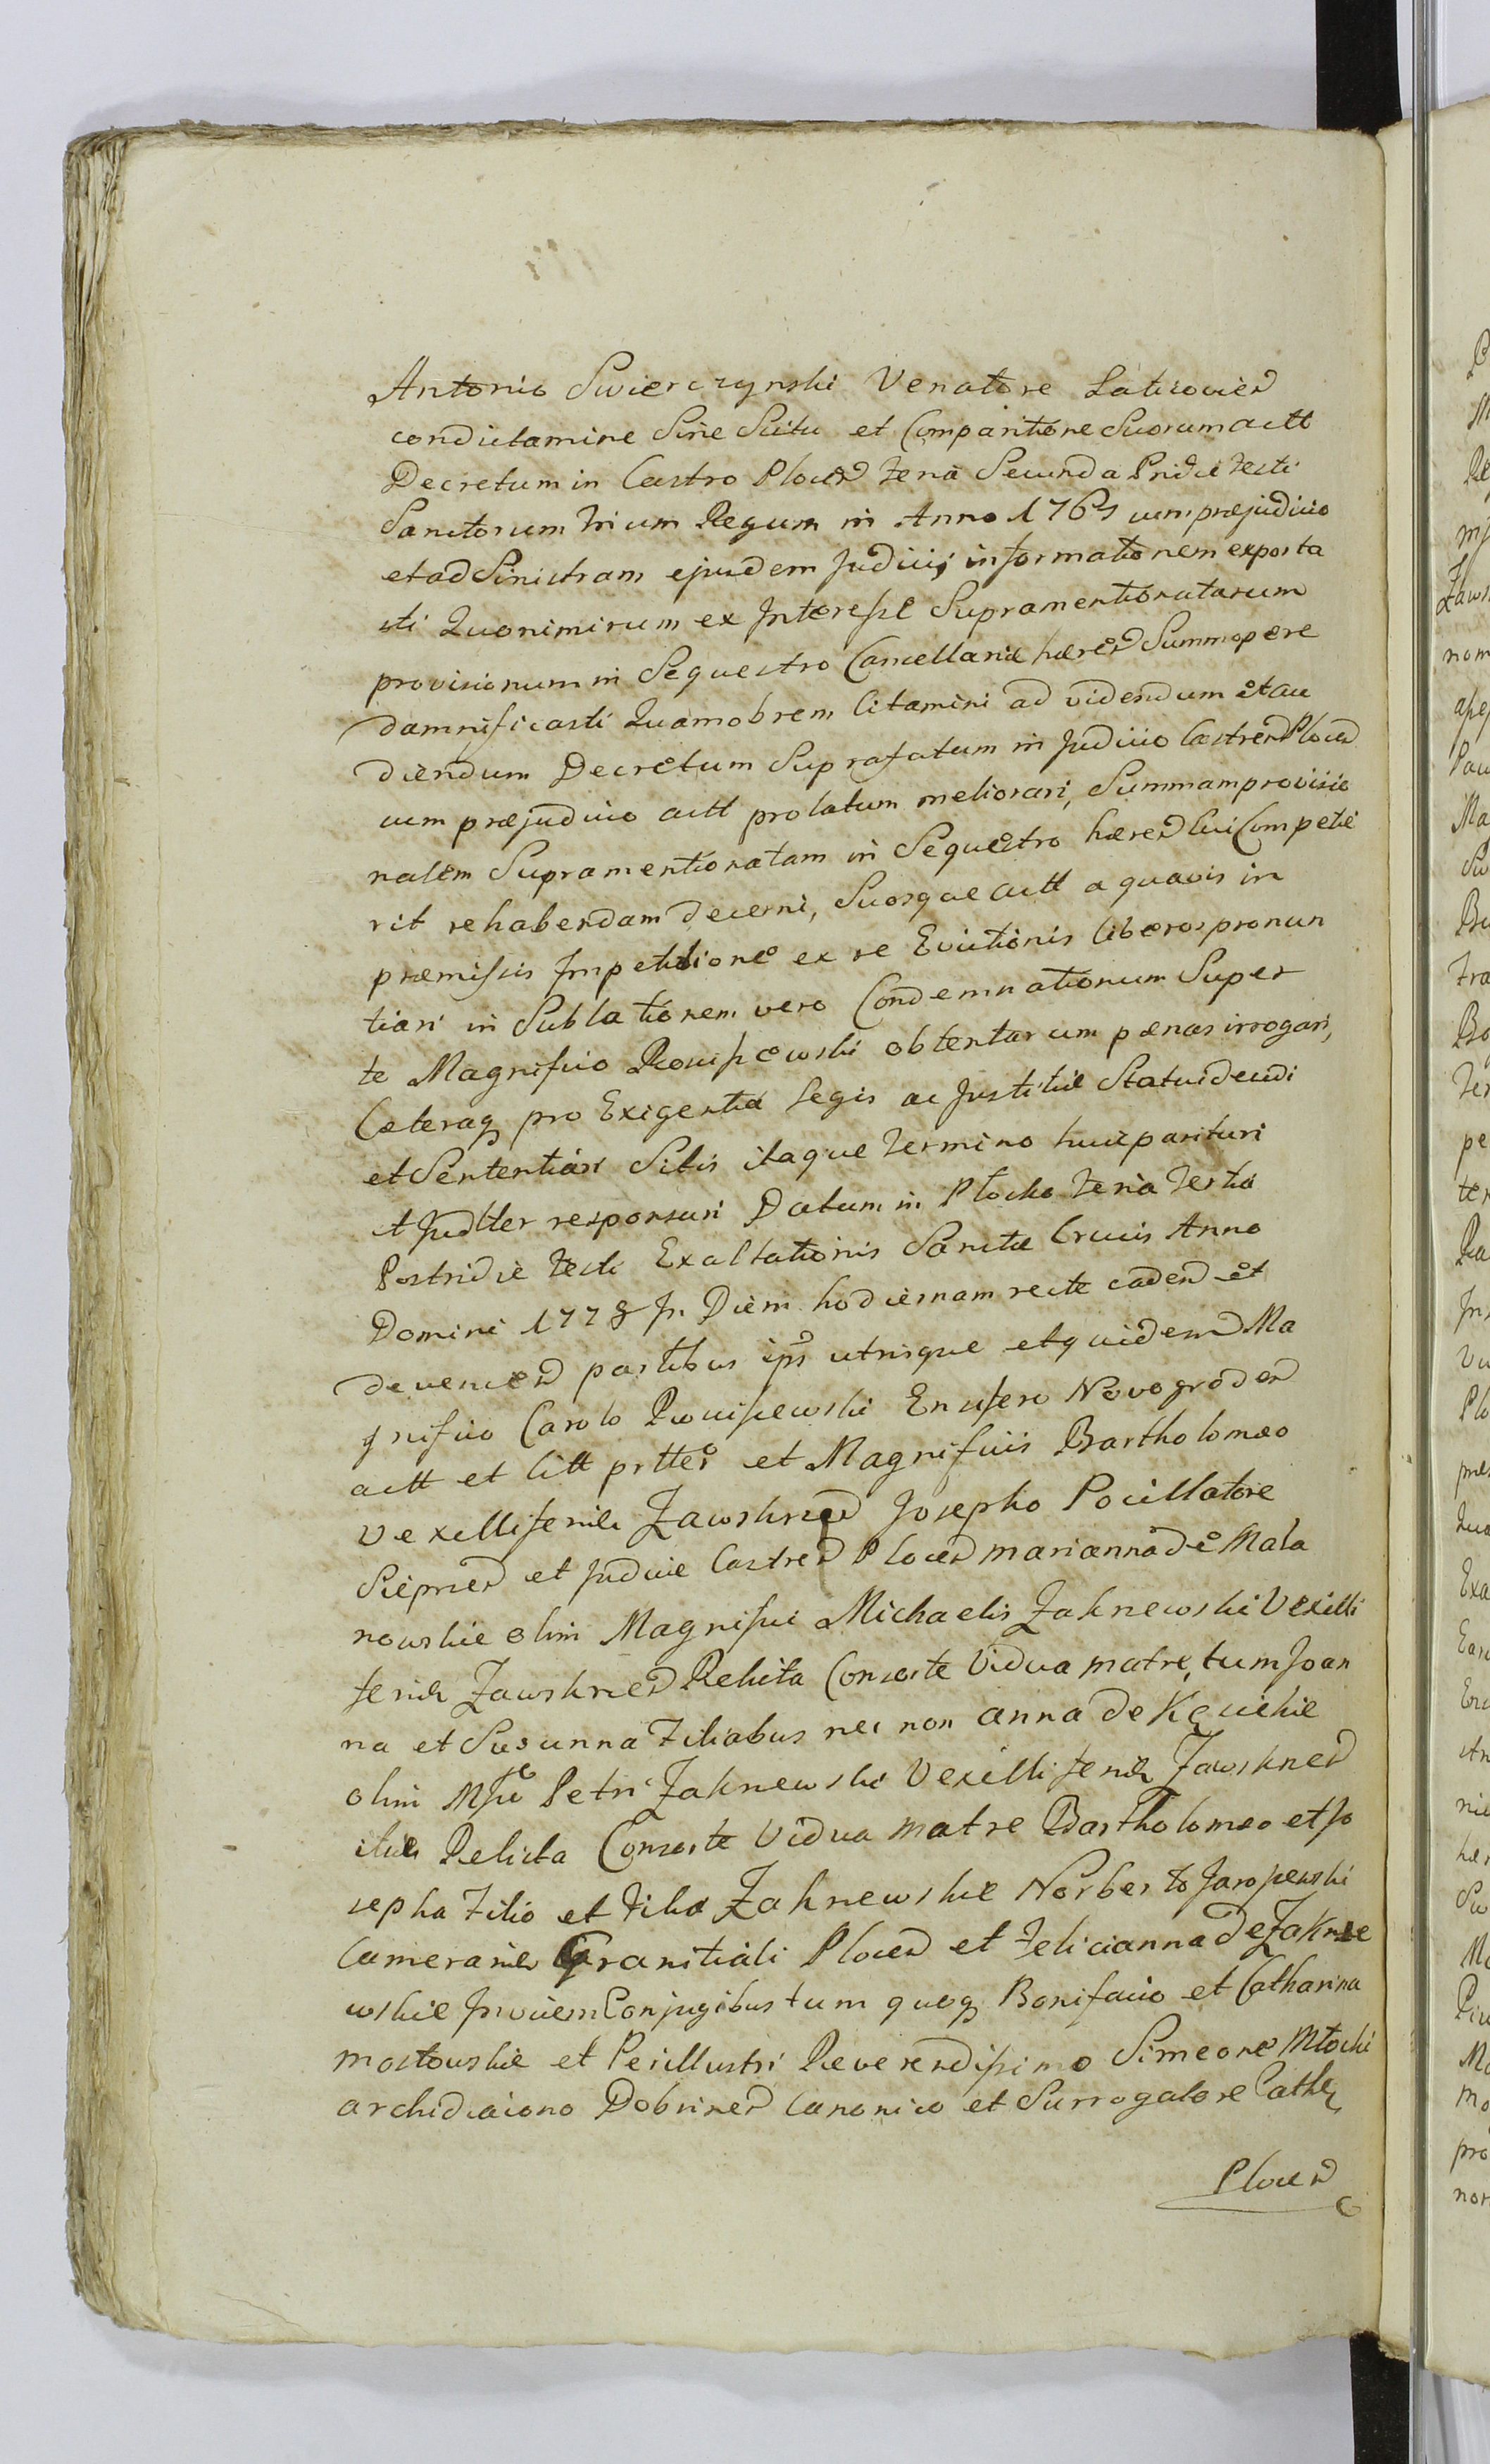 Antonio Swierczynski Venatore Laticovien
condictamine Sine Scitu et Comparitione Suorum actt
Decretum in Castro Plocen Feria Secunda Pridie Festi
Sanctorum trium Regum in Anno 1767 cum præjudicio
et ad Sinistram ejusdem Judicij informationem exporta
sti Quonimirum ex Interesse Supramentionatarum
provisionum in Sequestro Cancellariæ hæren Summopere
damnificasti Quamobrem Citamini ad videndum et au
diendum Decretum Suprafatum in Judicio Castren Plocen
cum præjudicio actt prolatum meliorari, Summam provisio
nalem Supramentionatam in Sequestro hæren Cui Competie
rit rehabendam decerni, Suosque actt a quavis in
præmissis Impetitione ex re Evictionis liberos pronun
tiari in Sublationem vero Condemnationum Super
te Magnifico Rościszewski obtentarum pænas irrogari,
Cæteraq pro Exigentia Legis ac Justitiæ Statui decidi
et Sententiari Sitis itaque termino huic parituri
et Judlter responsuri Datum in Płocko Feria Tertia
Postridie Festi Exaltationis Sanctæ Crucis Anno
Domini 1778 In Diem hodiernam recte caden et
devenien partibus ips utrisque et quidem Ma
gnifico Carolo Rościszewski Ensifero Novogroden
actt et litt prtter et Magnificis Bartholomæo
Vexilliferide Zawskrzen Josepho Pocillatore
Sieprcen et Judice Castren Plocen Marianna de Mala
nowskie olim Magnifici Michaelis Zaknewski Vexilli
feridæ Zawskrzen Relicta Consorte Vidua matre, tum Joan
na et Susanna Filiabus nec non Anna de Kęcickie
olim Mfci Petri Zaknewski Vexilliferidæ Zawskrzen
itide Relicta Consorte Vidua Matre Bartholomæo et Jo
sepha Filio et Filia Zaknewskie Norberto Jaroszewski
Camerario Granitiali Plocen et Felicianna de Zaknie
wskie Invicem Conjugibus tum quoq Bonifacio et Catharina
Mostowskie et Perillustri Reverendissimo Simeone Młocki
Archidiacono Dobrinen Canonico et Surrogatore Cathli
Plocen